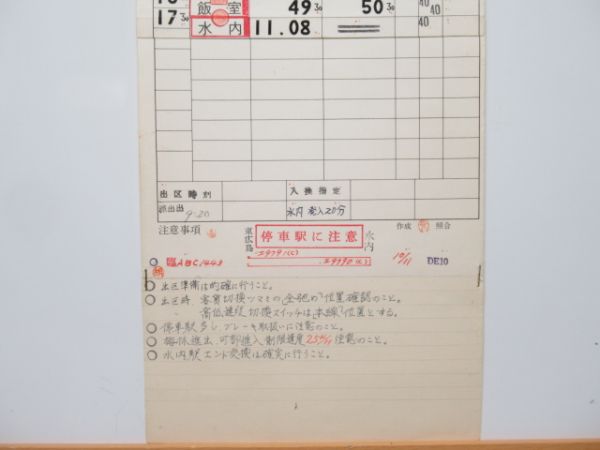 飯室 49 30 50 30 40
17 30 水内 11.08 40
出区時刻 入換指定
派出出 9-20 水内 着入20分
注意事項 作成 照合
東広島 停車駅に注意 水内
臨 ABC1448 10/11 DE10
出区準備は的確に行うこと。
出区時 客貨切換ツマミの
高低速段切換スイッチは「本線」位置とする。
停車駅多し、ブレーキ取扱いに注意のこと。
可部進入制限速度25㎞/h注意のこと。
水内駅エンド交換は確実に行うこと。